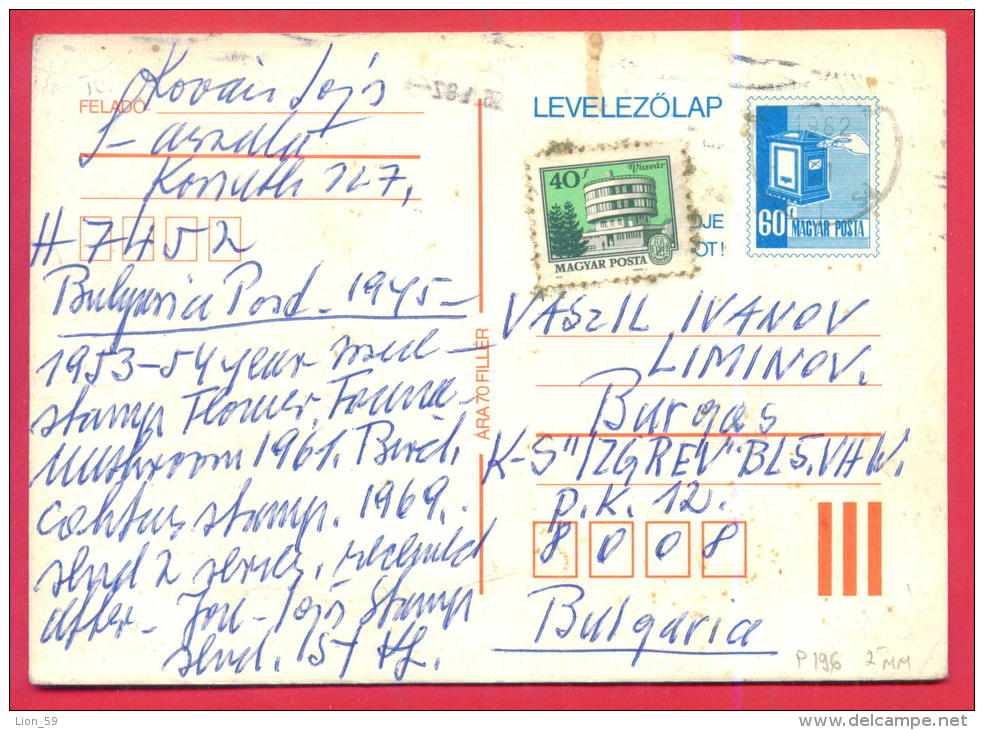 FELADÓ:
Kovács Lajos
Aszaló
Kossuth 127,
H 7452
Bulgaria Post - 1945 -
1953-54 year used -
stamp Flower, Fauna -
Mushroom 1961. Bird,
cactus stamp. 1969.
send 2 series,
after - stamp
send.
ÁRA 70 FILLÉR
LEVELEZŐLAP
40f
Vasvár
MAGYAR POSTA
1982
60f
MAGYAR POSTA
DJE
OT!
VASZIL IVANOV
LIMINOV.
Burgas
K-S "IZGREV" BL 5. VH W.
P.K. 12.
8 0 0 8
Bulgaria
P 196 2- MM
Lion_59
www.delcampe.net